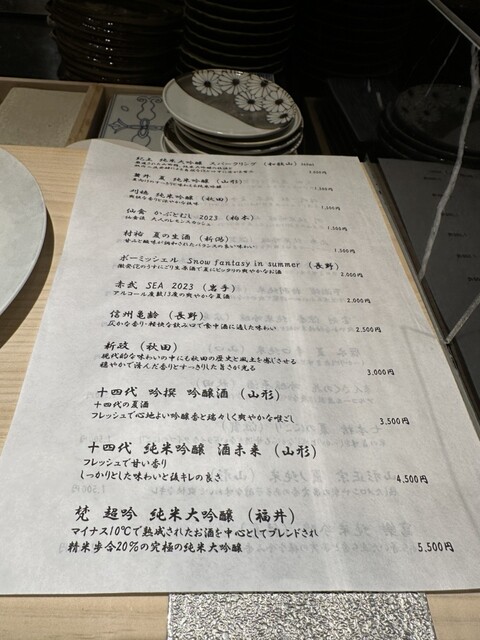 紀土 純米大吟醸 スパークリング (和歌山)
夏 純米吟醸 (山形)
刈穂 純米吟醸 (秋田)
仙禽 かぶとむし 2023 (栃木)
1,500円
村祐 夏の生酒 (新潟)
甘みと酸味が絞わされたバランスの良い味わい
1,500円
ボーミッシェル Snow fantasy in summer (長野)
微発泡のうすにごり生原酒で夏にピッタリの爽やかなお酒
2,000円
赤武 SEA 2023 (岩手)
アルコール度数13度の爽やかな夏酒
2,000円
信州亀齢 (長野)
仄かな香り・軽快な飲み口で食中酒に適した味わい
2,500円
新政 (秋田)
現代的な味わいの中にも秋田の歴史と風土を感じさせる
穏やかで澄んだ香りとすっきりした旨さが光る
3,000円
十四代 吟撰 吟醸酒 (山形)
十四代の夏酒
フレッシュで心地よい吟醸香と瑞々しく爽やかな喉ごし
3,500円
十四代 純米吟醸 酒未来 (山形)
フレッシュで甘い香り
しっかりとした味わいと後キレの良さ
4,500円
梵 超吟 純米大吟醸 (福井)
マイナス10℃で熟成されたお酒を中心としてブレンドされ
精米歩合20%の究極の純米大吟醸
5,500円